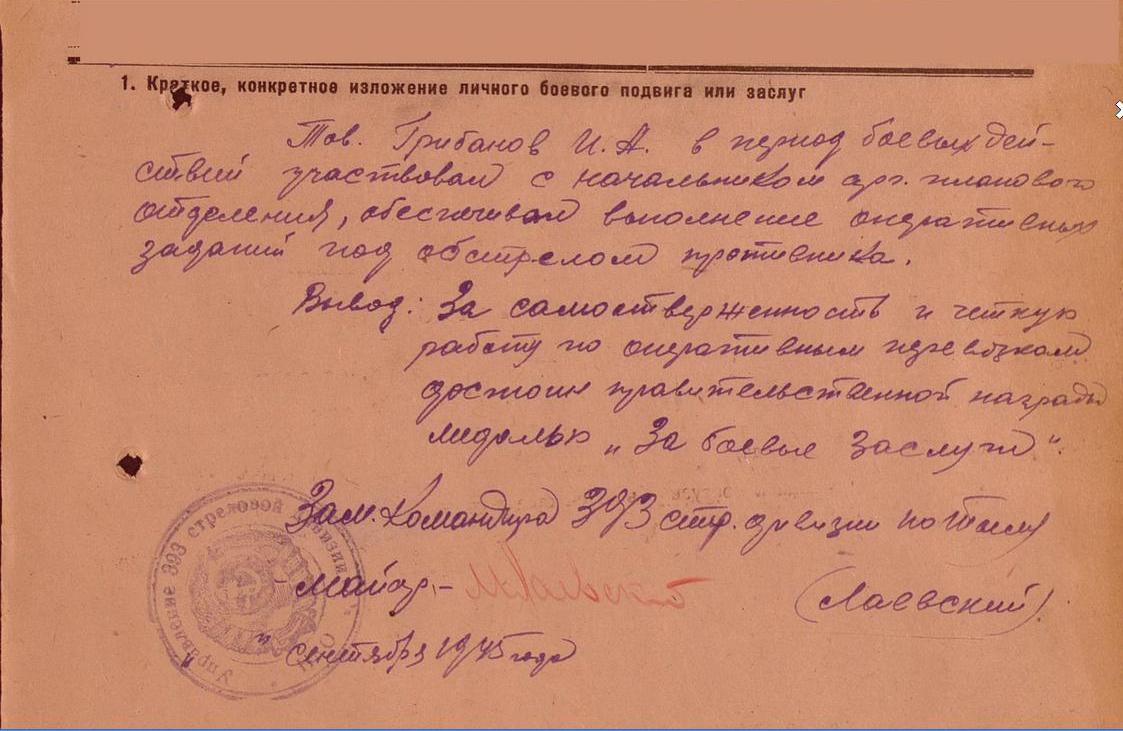 1. Краткое, конкретное изложение личного боевого подвига или заслуг
Тов. Грибанов И.А. в период боевых дей-
ствий участвовал с начальником орг. планового
отделения, обеспечивал выполнение оперативных
заданий под обстрелом противника.
Вывод: За самоотверженность и четкую
работу по оперативным перевозкам
достоин правительственной награды
медалью „За боевые заслуги".
Зам. Командира 393 стр. дивизии по тылу
Майор –
(Лаевский)
" " сентября 1945 года
Управление 393 стрелковой дивизии